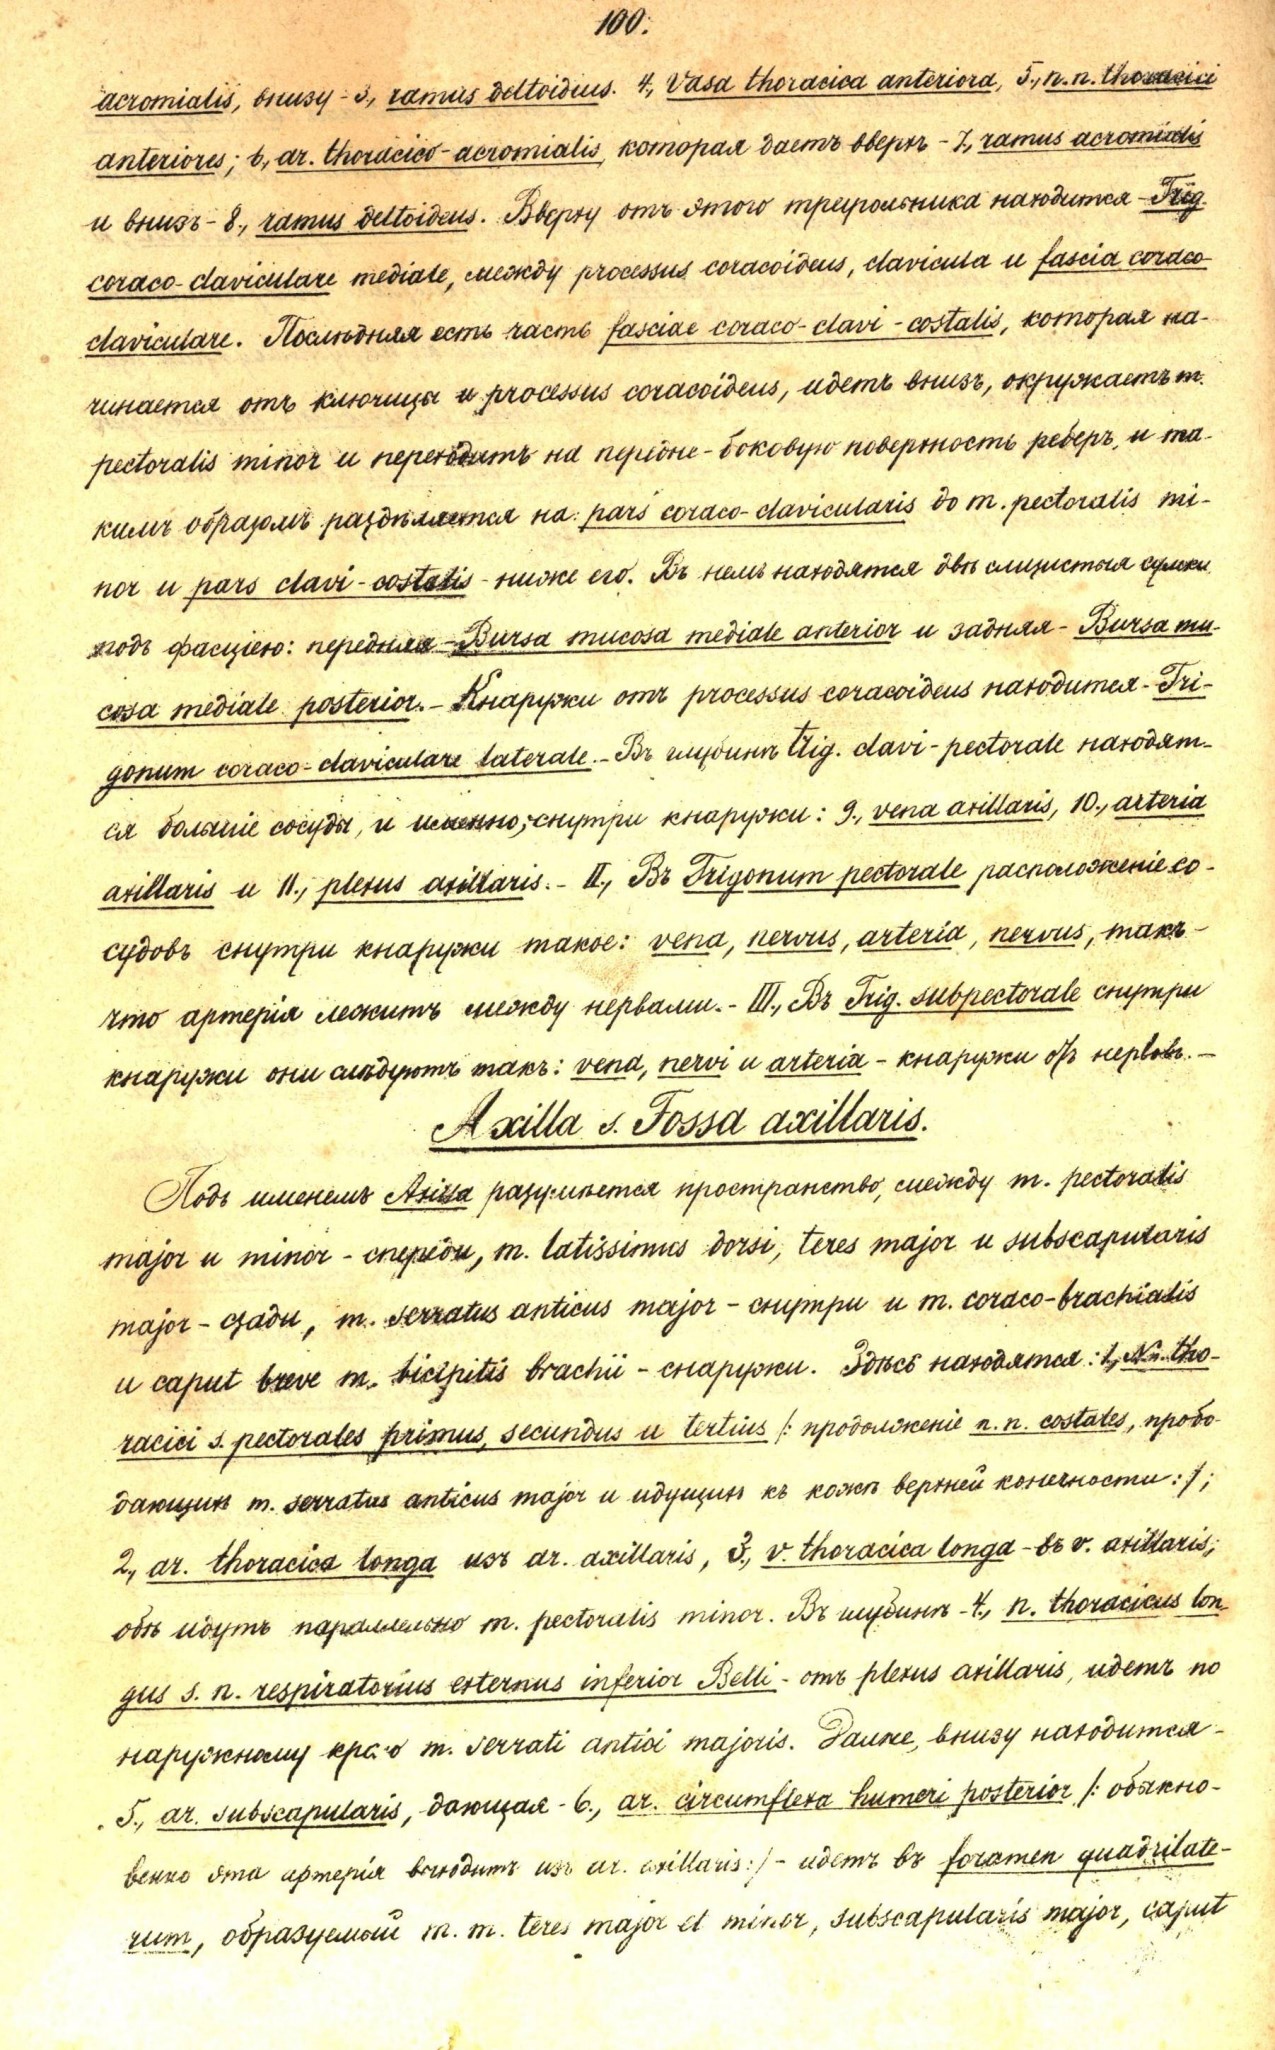 100.
acromialis, внизу - 3., ramus deltoideus. 4., Vasa thoracica anteriora, 5., n. n. thoracici
anteriores; 6., ar. thoracico-acromialis, которая даетъ вверхъ - 7., ramus acromialis
и внизъ - 8., ramus deltoideus. Вверху отъ этого треугольника находится - Trig.
coraco-claviculare mediale, между processus coracoideus, clavicula и fascia coraco-
claviculare. Послѣдняя есть часть fasciae coraco-clavi-costalis, которая на-
чинается отъ ключицы и processus coracoideus, идетъ внизъ, окружаетъ m.
pectoralis minor и переходитъ на передне-боковую поверхность реберъ, и та-
кимъ образомъ раздѣляется на: pars coraco-clavicularis до m. pectoralis mi-
nor и pars clavi-costalis - ниже его. Въ немъ находятся двѣ слизистыя сумки
подъ фасціею: передняя - Bursa mucosa mediale anterior и задняя - Bursa mu-
cosa mediale posterior. - Кнаружи отъ processus coracoideus находится - Tri-
gonum coraco-claviculare laterale. - Въ глубинѣ trig. clavi-pectorale находят-
ся большіе сосуды, и именно, снутри кнаружи: 9., vena axillaris, 10., arteria
axillaris и 11., plexus axillaris. - II., Въ Trigonum pectorale расположеніе со-
судовъ снутри кнаружи такое: vena, nervus, arteria, nervus, такъ -
что артерія лежитъ между нервами. - III., Въ Trig. subpectorale снутри
кнаружи они слѣдуютъ такъ: vena, nervi и arteria - кнаружи отъ нервовъ. -
Axilla s. Fossa axillaris.
Подъ именемъ Axilla разумѣется пространство, между m. pectoralis
major и minor - спереди, m. latissimus dorsi, teres major и subscapularis
major - сзади, m. serratus anticus major - снутри и m. coraco-brachialis
и caput breve m. bicipitis brachii - снаружи. Здѣсь находятся: 1., N.n. tho-
racici s. pectorales primus, secundus и tertius /: продолженіе n. n. costales, пробо-
дающихъ m. serratus anticus major и идущихъ къ кожѣ верхней конечности :/;
2., ar. thoracica longa изъ ar. axillaris, 3., v. thoracica longa - въ v. axillaris;
обѣ идутъ параллельно m. pectoralis minor. Въ глубинѣ - 4., n. thoracicus lon-
gus s. n. respiratorius externus inferior Belli - отъ plexus axillaris, идетъ по
наружному краю m. serrati antici majoris. Далѣе, внизу находится -
5., ar. subscapularis, дающая - 6., ar. circumflexa humeri posterior /: обыкно-
венно эта артерія выходитъ изъ ar. axillaris :/ - идетъ въ foramen quadrilate-
rum, образуемый m. m. teres major et minor, subscapularis major, caput